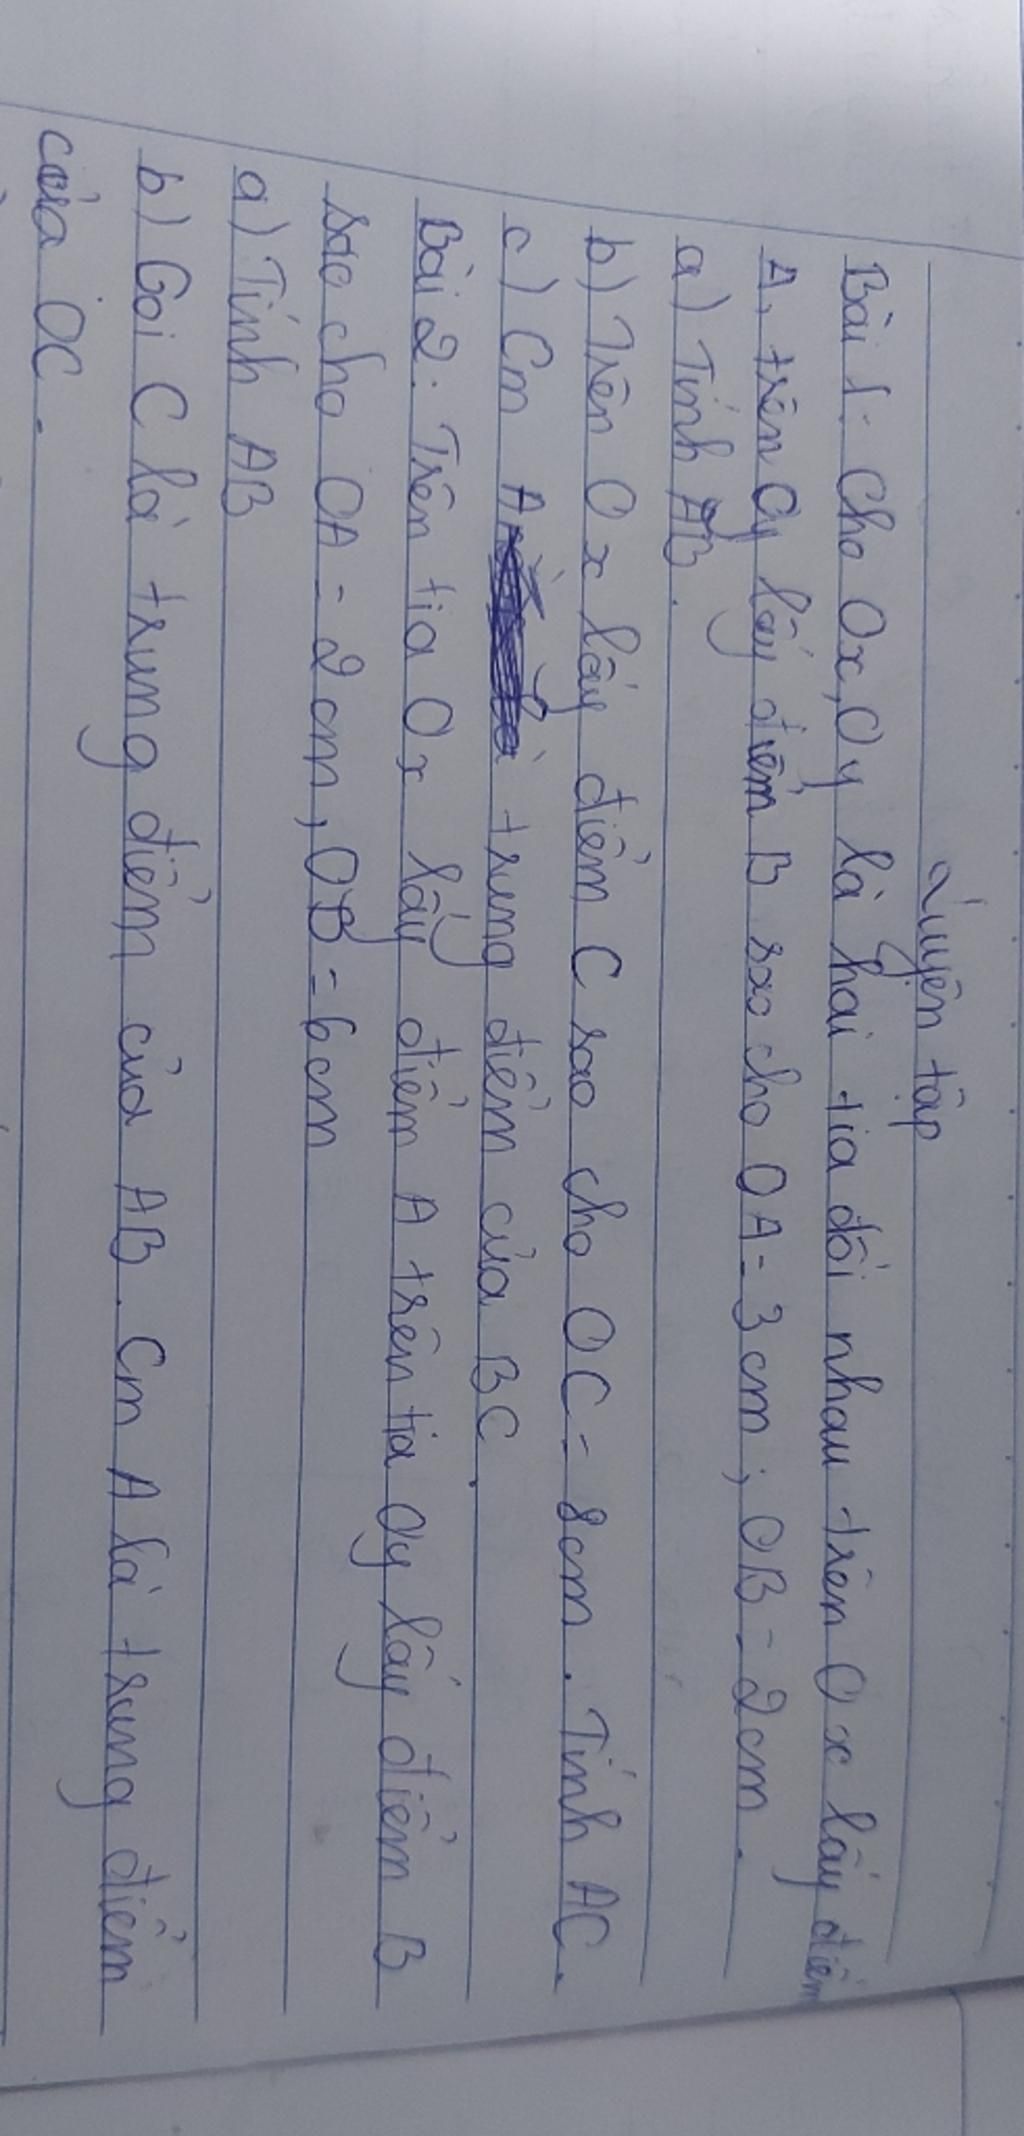 Luyện tập
Bài 1: Cho Ox, Oy là hai tia đối nhau trên Ox lấy điểm
A, trên Oy lấy điểm B sao cho OA = 3cm; OB = 2cm.
a) Tính AB.
b) Trên Ox lấy điểm C sao cho OC = 8cm. Tính AC.
c) Cm A trung điểm của BC.
Bài 2: Trên tia Ox lấy điểm A trên tia Oy lấy điểm B
sao cho OA = 2cm, OB = 6cm
a) Tính AB
b) Gọi C là trung điểm của AB. Cm A là trung điểm
của OC.